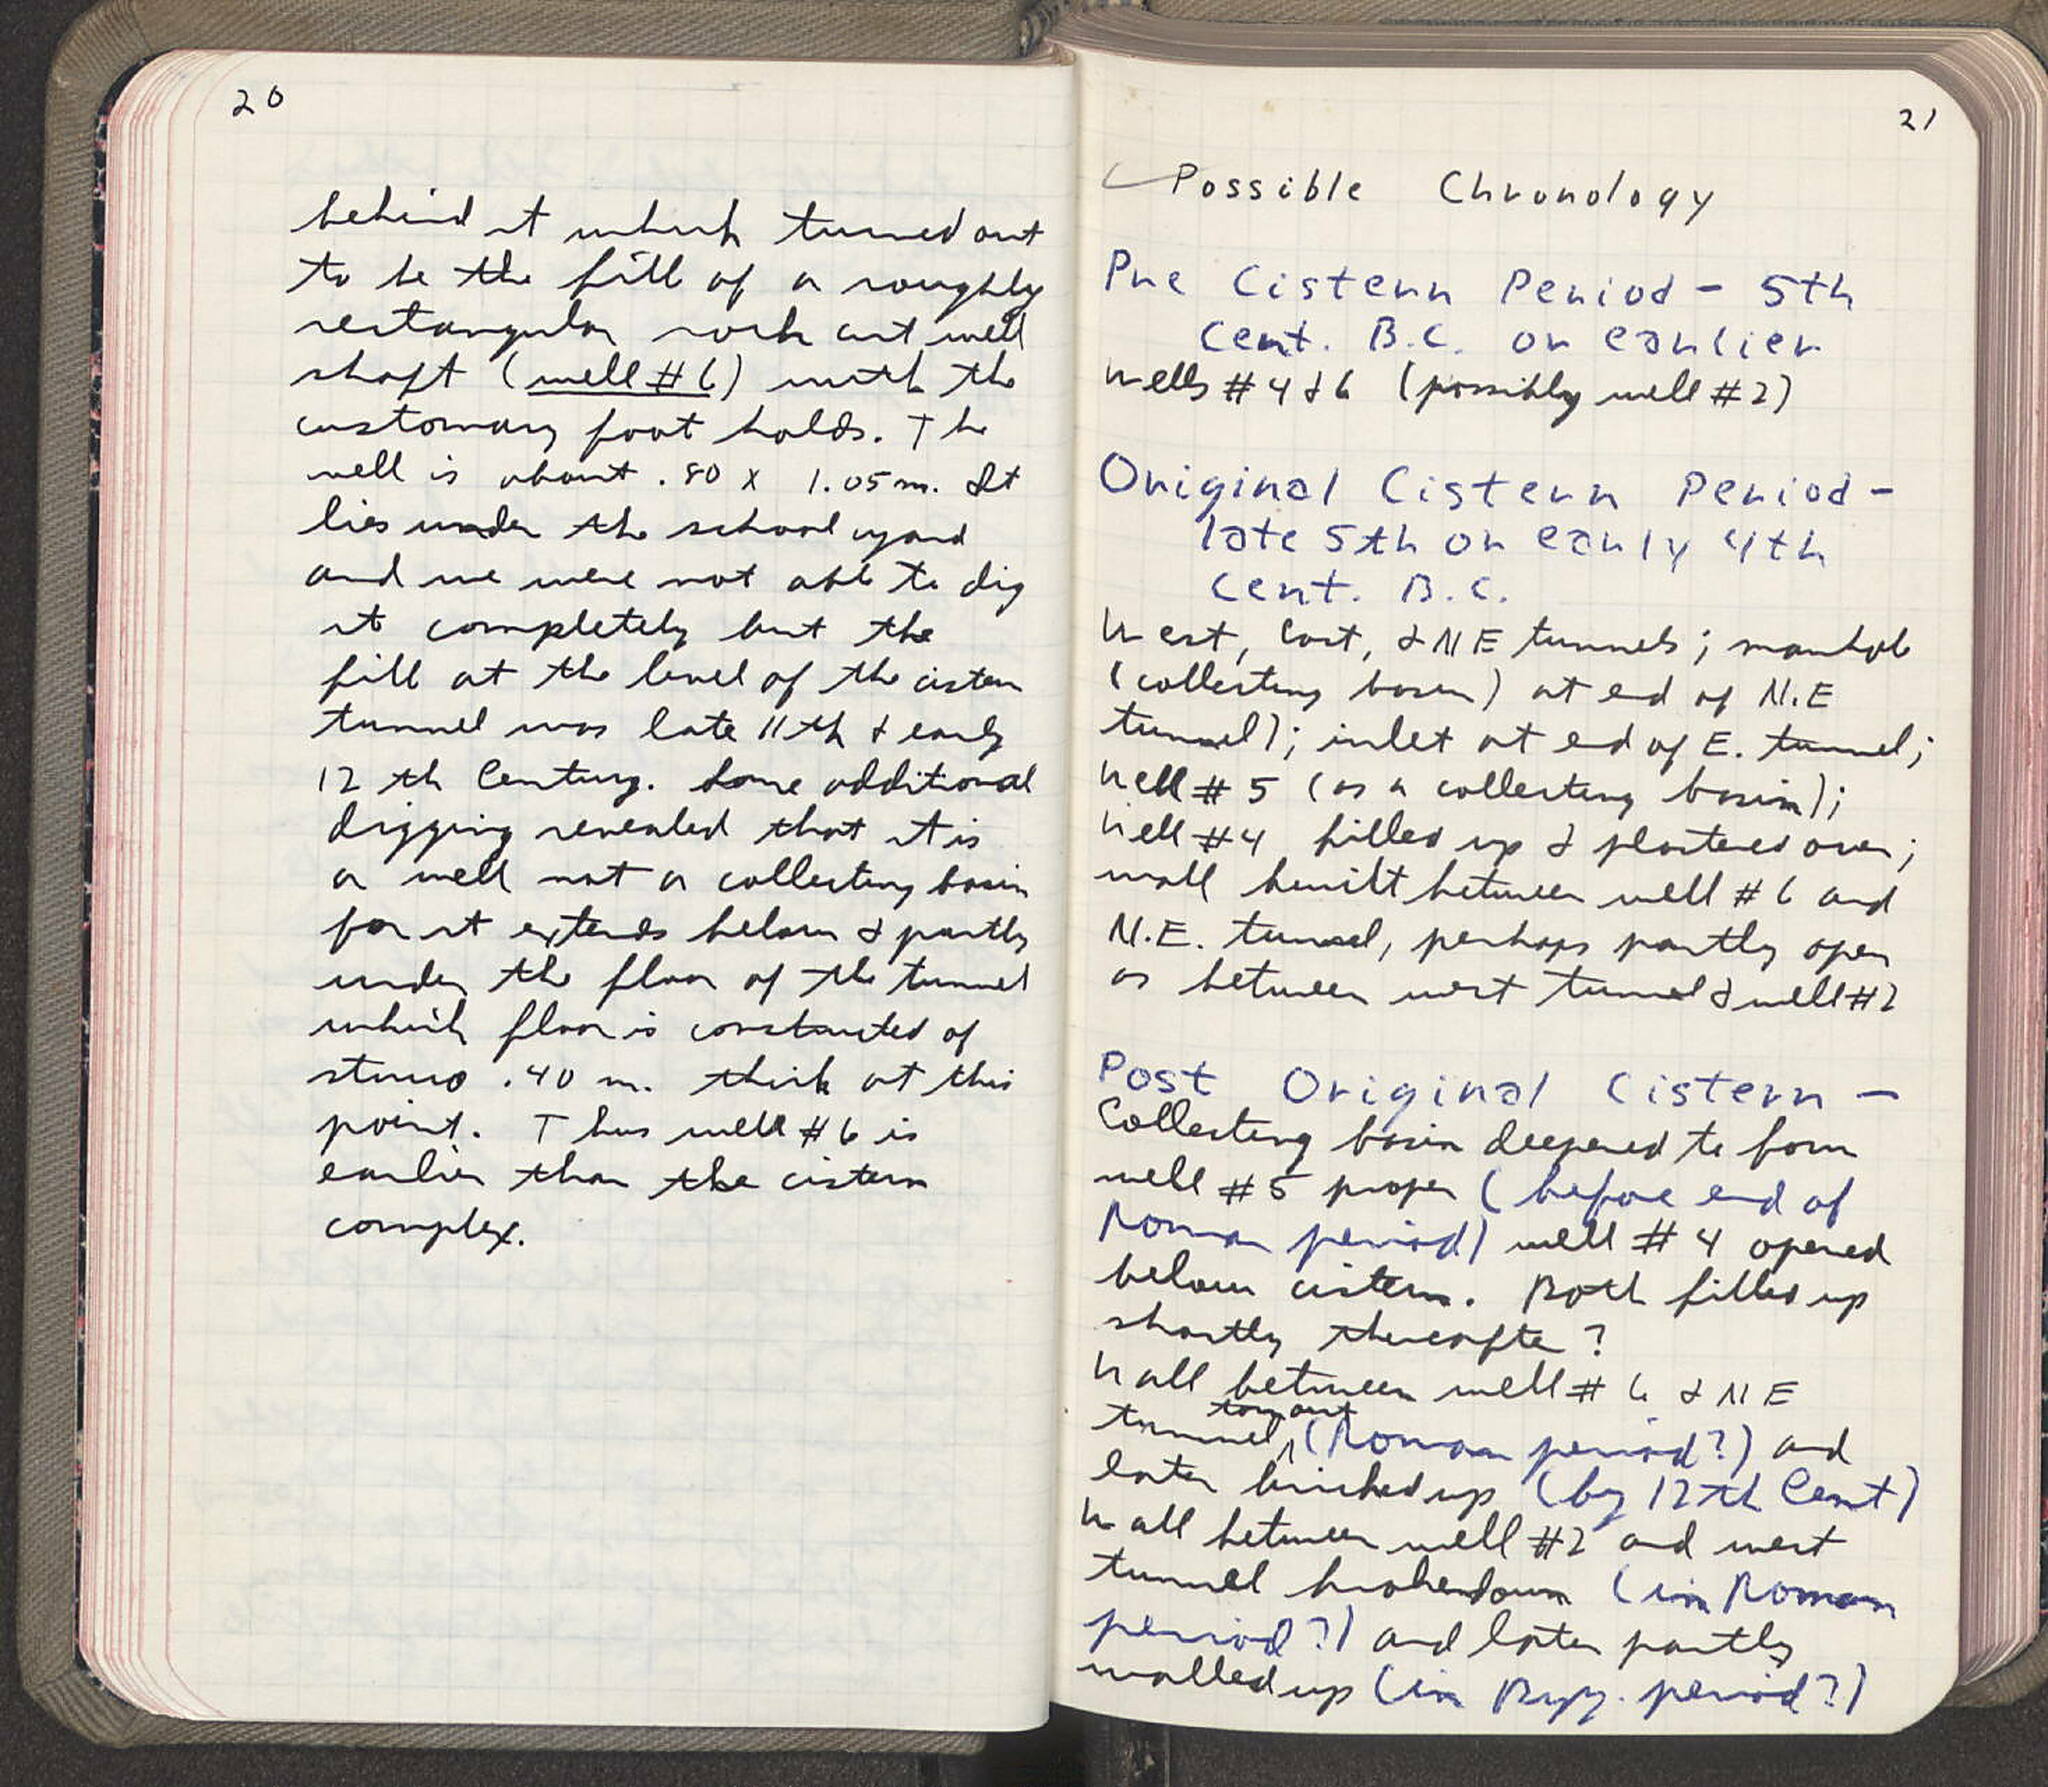 20
behind it which turned out
to be the fill of a roughly
rectangular rock cut well
shaft (well #6) with the
customary foot holds. The
well is about .80 x 1.05 m. It
lies under the school yard
and we were not able to dig
it completely but the
fill at the level of the cistern
tunnel was late 11th & early
12 th Century. Some additional
digging revealed that it is
a well not a collecting basin
for it extends below & partly
under the floor of the tunnel
which floor is constructed of
stucco .40 m. thick at this
point. Thus well #6 is
earlier than the cistern
complex.
21
Possible Chronology
Pre Cistern Period - 5th
Cent. B.C. or earlier
Wells #4 & 6 (possibly well #2)
Original Cistern Period -
late 5th or early 4th
Cent. B.C.
West, East, & NE tunnels; manhole
(collecting basin) at end of N.E
tunnel); inlet at end of E. tunnel;
Well #5 (as a collecting basin);
Well #4 filled up & plastered over;
wall built between well #6 and
N.E. tunnel, perhaps partly open
as between west tunnel & well #2
Post Original Cistern -
Collecting basin deepened to form
well #5 proper (before end of
Roman period) well #4 opened
below cistern. Both filled up
shortly thereafter?
Wall between well #6 & NE
tunnel torn out (Roman period?) and
later bricked up (by 12th Cent)
Wall between well #2 and west
tunnel broken down (in Roman
period?) and later partly
walled up (in Byz. period?)